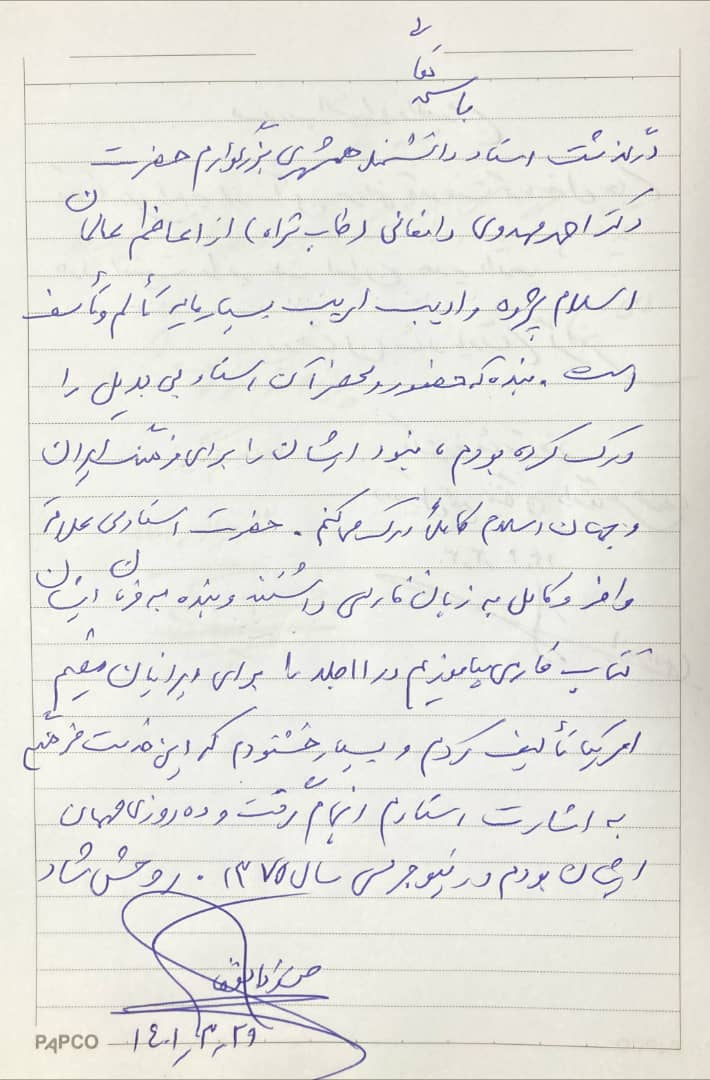 باسمه تعالی
درگذشت استاد دانشمند همشهری بزرگوارم حضرت
دکتر احمد مهدوی دامغانی (طاب ثراه) از اعاظم عالمان
اسلام پژوه و ادیب اریب بسیار مایه تألم و تأسف
است. بنده که حضور و محضر آن استاد بی بدیل را
درک کرده بودم، نبود ایشان را برای فرهنگ ایران
و جهان اسلام کاملاً درک میکنم. حضرت استادی علاقهٔ
وافر و کامل به زبان فارسی داشتند و بنده به فرمان ایشان
کتاب فارسی بیاموزیم در ۱۱ جلد را برای ایرانیان مقیم
امریکا تألیف کردم و بسیار خشنودم که این خدمت فرهنگی
به اشارت استادم انجام گرفت و ده روزی مهمان
ایشان بودم در نیوجرسی سال ۱۳۷۵. روحش شاد
۱۴۰۱٫۳٫۲۹
PAPCO